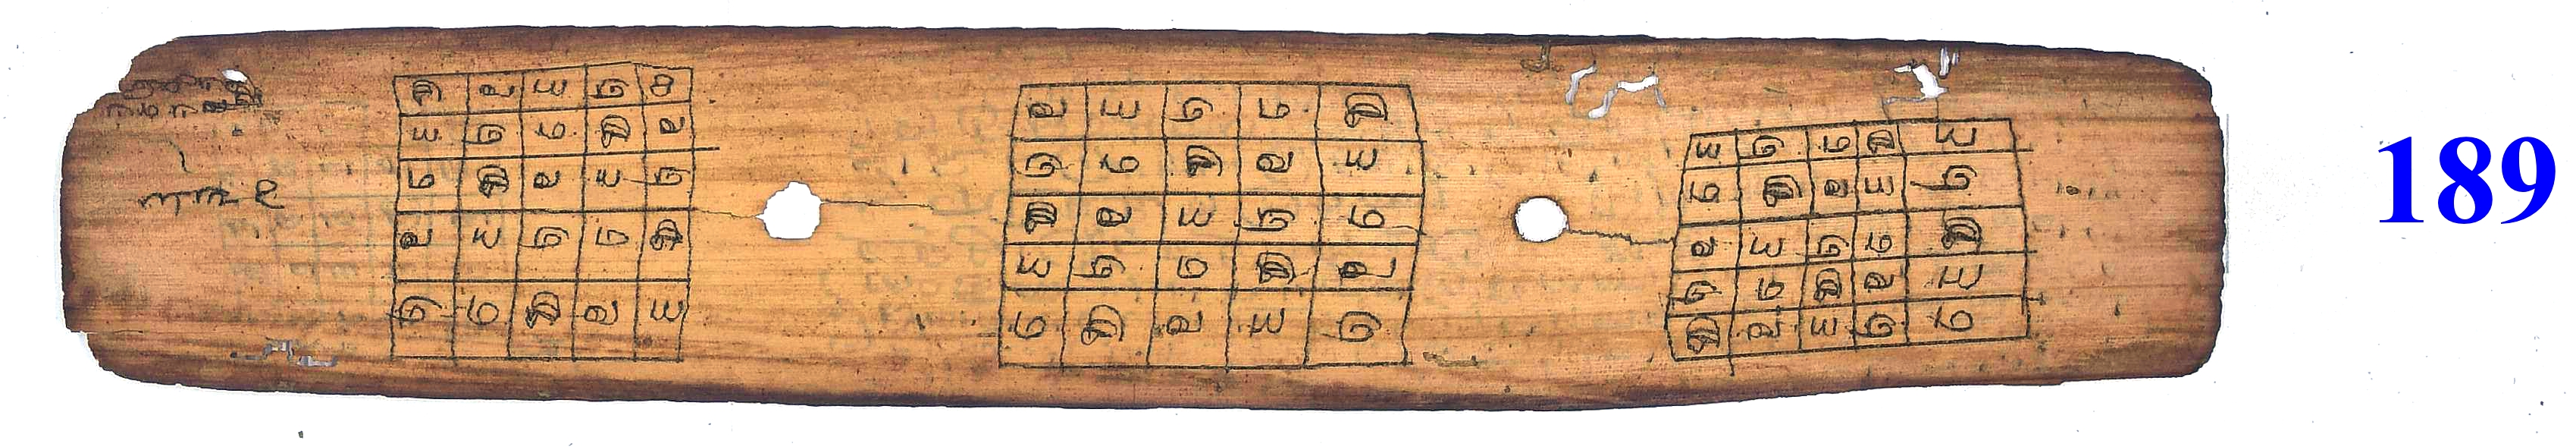 சி வ ய ந ம
ய ந ம சி வ
ம சி வ ய ந
வ ய ந ம சி
ந ம சி வ ய
வ ய ந ம சி
ந ம சி வ ய
சி வ ய ந ம
ய ந ம சி வ
ம சி வ ய ந
ய ந ம சி ய
ம சி வ ய ந
வ ய ந ம சி
ந ம சி வ ய
சி வ ய ந ம
189